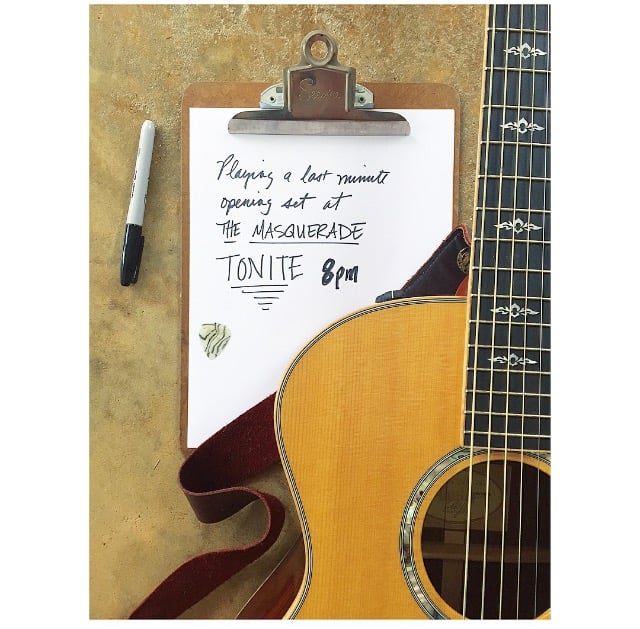 Playing a last minute
opening set at
THE MASQUERADE
TONITE 8pm